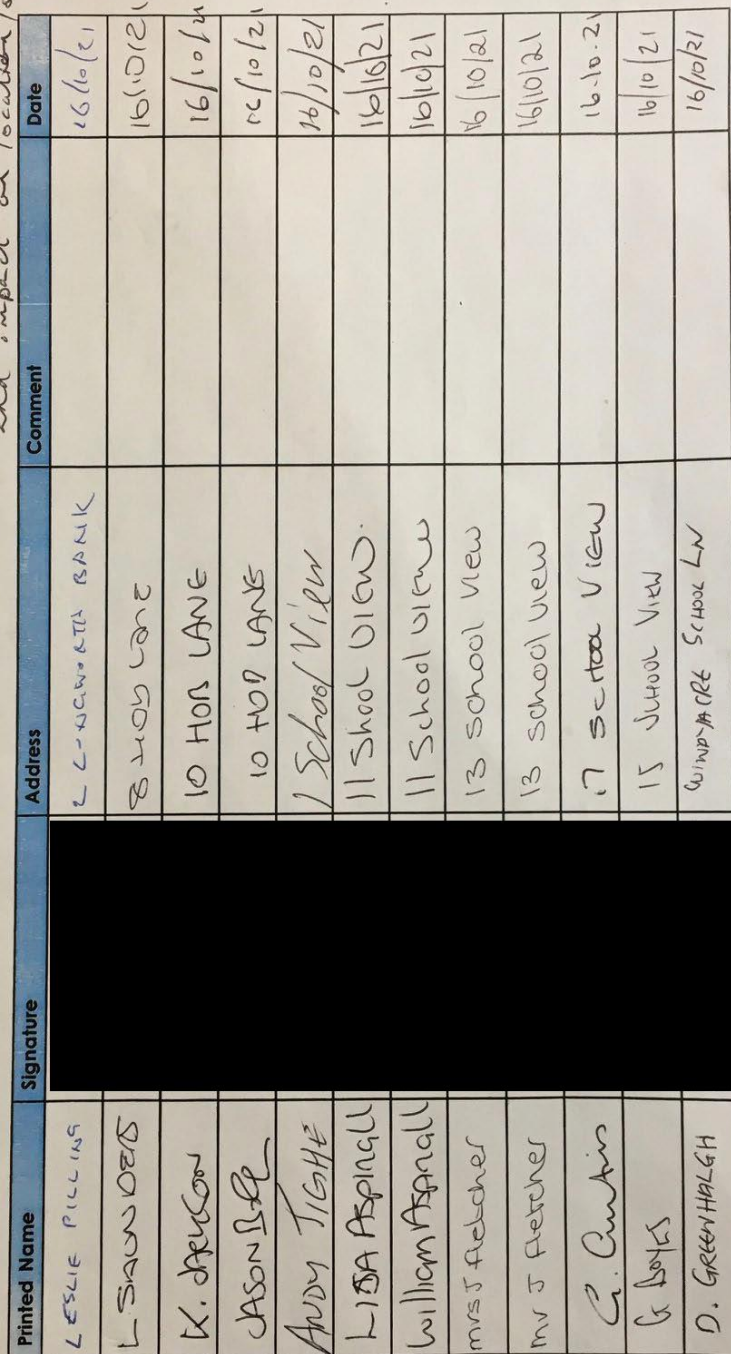 and impact on location is
Printed Name Signature Address Comment Date
LESLIE PILLING 2 LONGWORTH BANK 16/10/21
L SAUNDERS 8 HOB Lane 16/10/21
K. JACKSON 10 HOB LANE 16/10/21
JASON 10 HOB LANE 16/10/21
ANDY TIGHE 1 School View 16/10/21
LISA Aspinall 11 Shool VIEW. 16/10/21
William Aspinall 11 School View 16/10/21
mrs J Fletcher 13 School View 16/10/21
mr J Fletcher 13 School View 16/10/21
G. Curtis 17 School View 16-10-21
G Boyes 15 School View 16/10/21
D. GREENHALGH WINDYACRE SCHOOL LN 16/10/21